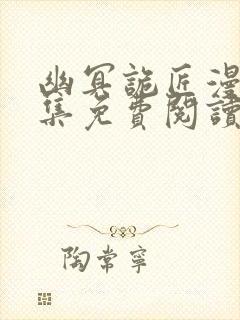 幽冥詭匠漫
集免費閱讀
陶常寧